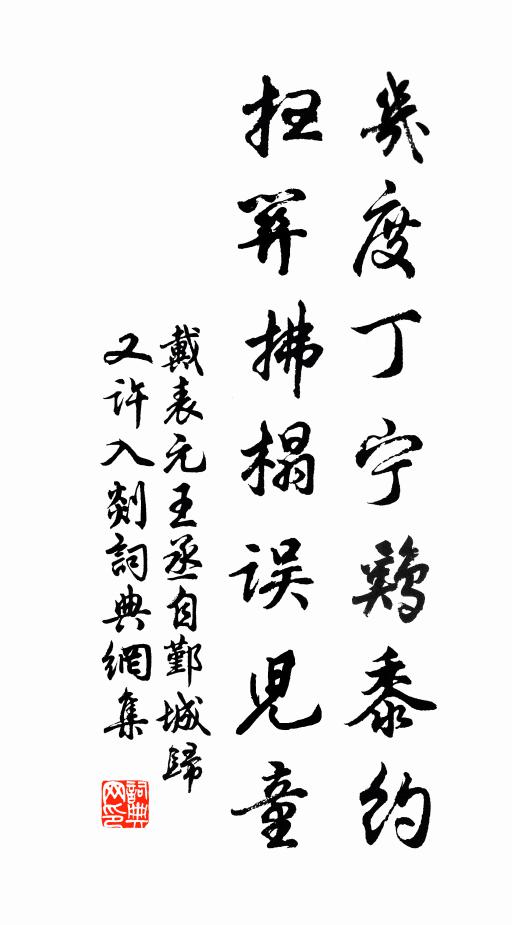 幾度丁宁鷄黍約
扫笄拂榻误兒童
戴表元王丞自鄞城歸
又許入剡詞典網集
詞典网印